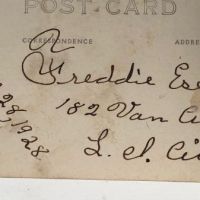 POST CARD
CORRESPONDENCE ADDRES
R
Freddie Es
182 Van A
28 1928
L. I. Ci